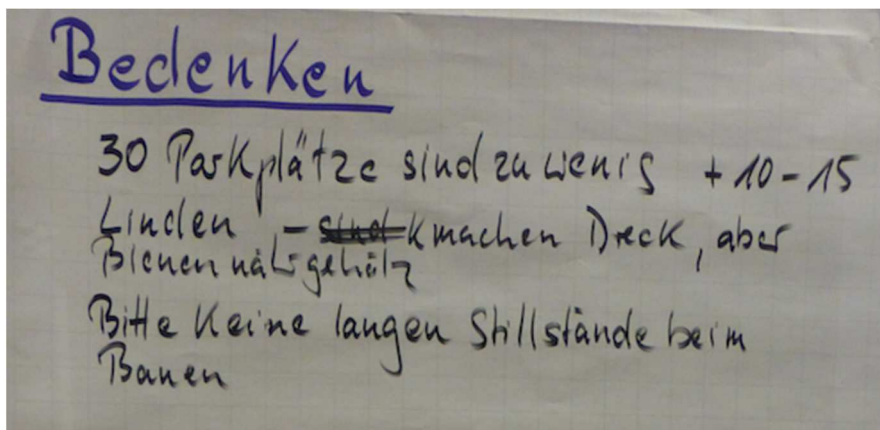 Bedenken
30 Parkplätze sind zu wenig + 10 - 15
Linden - machen Dreck, aber
Bienennährgehölz
Bitte keine langen Stillstände beim
Bauen